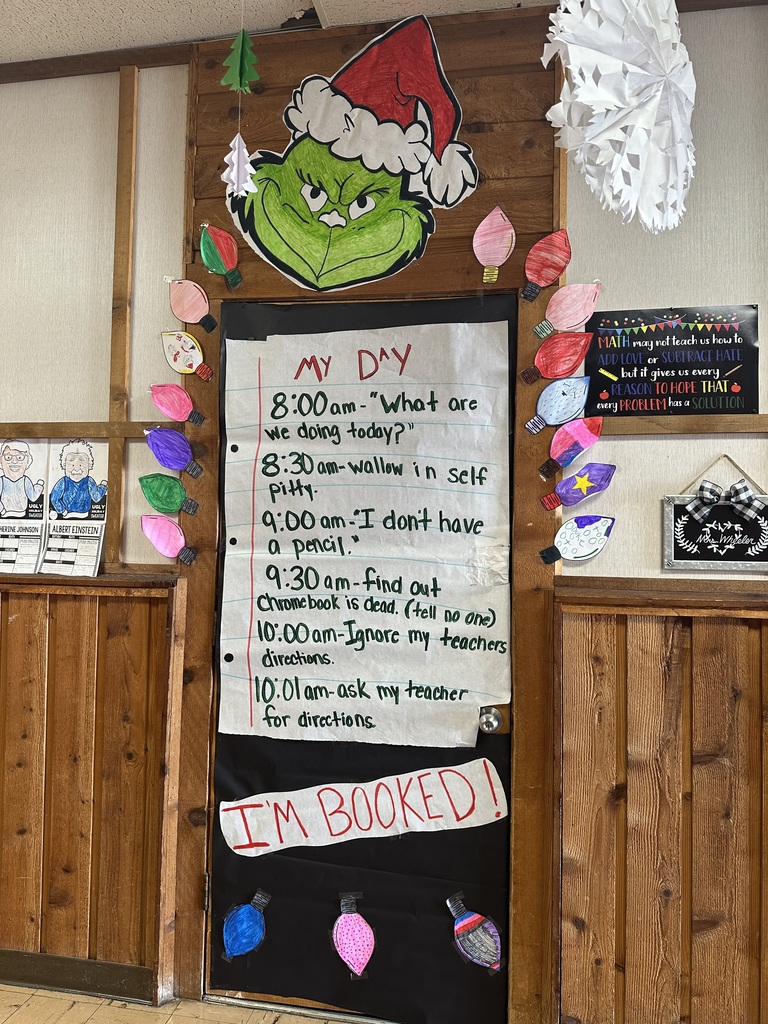 MY DAY
8:00am-"What are
we doing today?"
8:30am-wallow in self
pitty.
9:00am-"I don't have
a pencil."
9:30am-find out
Chromebook is dead. (tell no one)
10:00am-Ignore my teachers
directions.
10:01am-ask my teacher
for directions.
I'M BOOKED!
MATH may not teach us how to
ADD LOVE or SUBTRACT HATE
but it gives us every
REASON TO HOPE THAT
every PROBLEM has a SOLUTION
Mrs. Wheeler
HERINE JOHNSON
UGLY
ALBERT EINSTEIN
UGLY
SWEATER